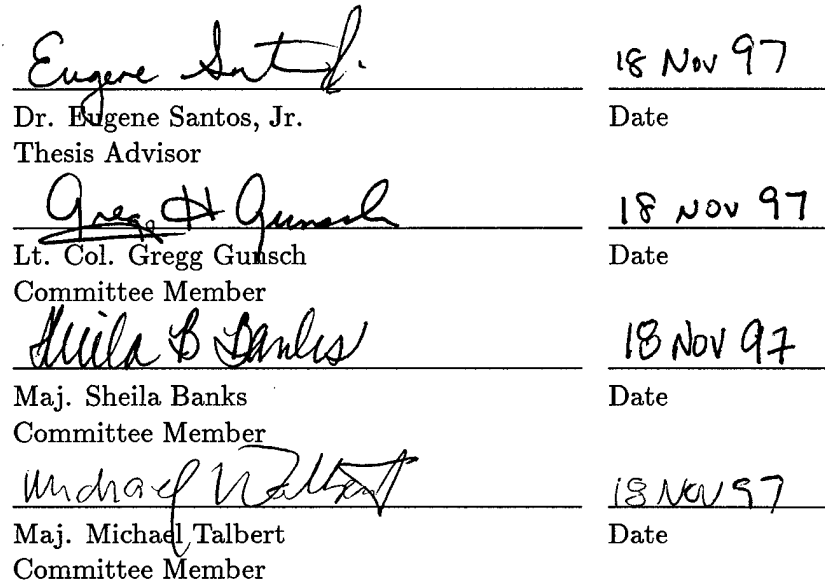 Eugene Santos Jr. 18 Nov 97
Dr. Eugene Santos, Jr. Date
Thesis Advisor
Gregg H Gunsch 18 NOV 97
Lt. Col. Gregg Gunsch Date
Committee Member
Sheila B Banks 18 Nov 97
Maj. Sheila Banks Date
Committee Member
Michael Talbert 18 NOV 97
Maj. Michael Talbert Date
Committee Member